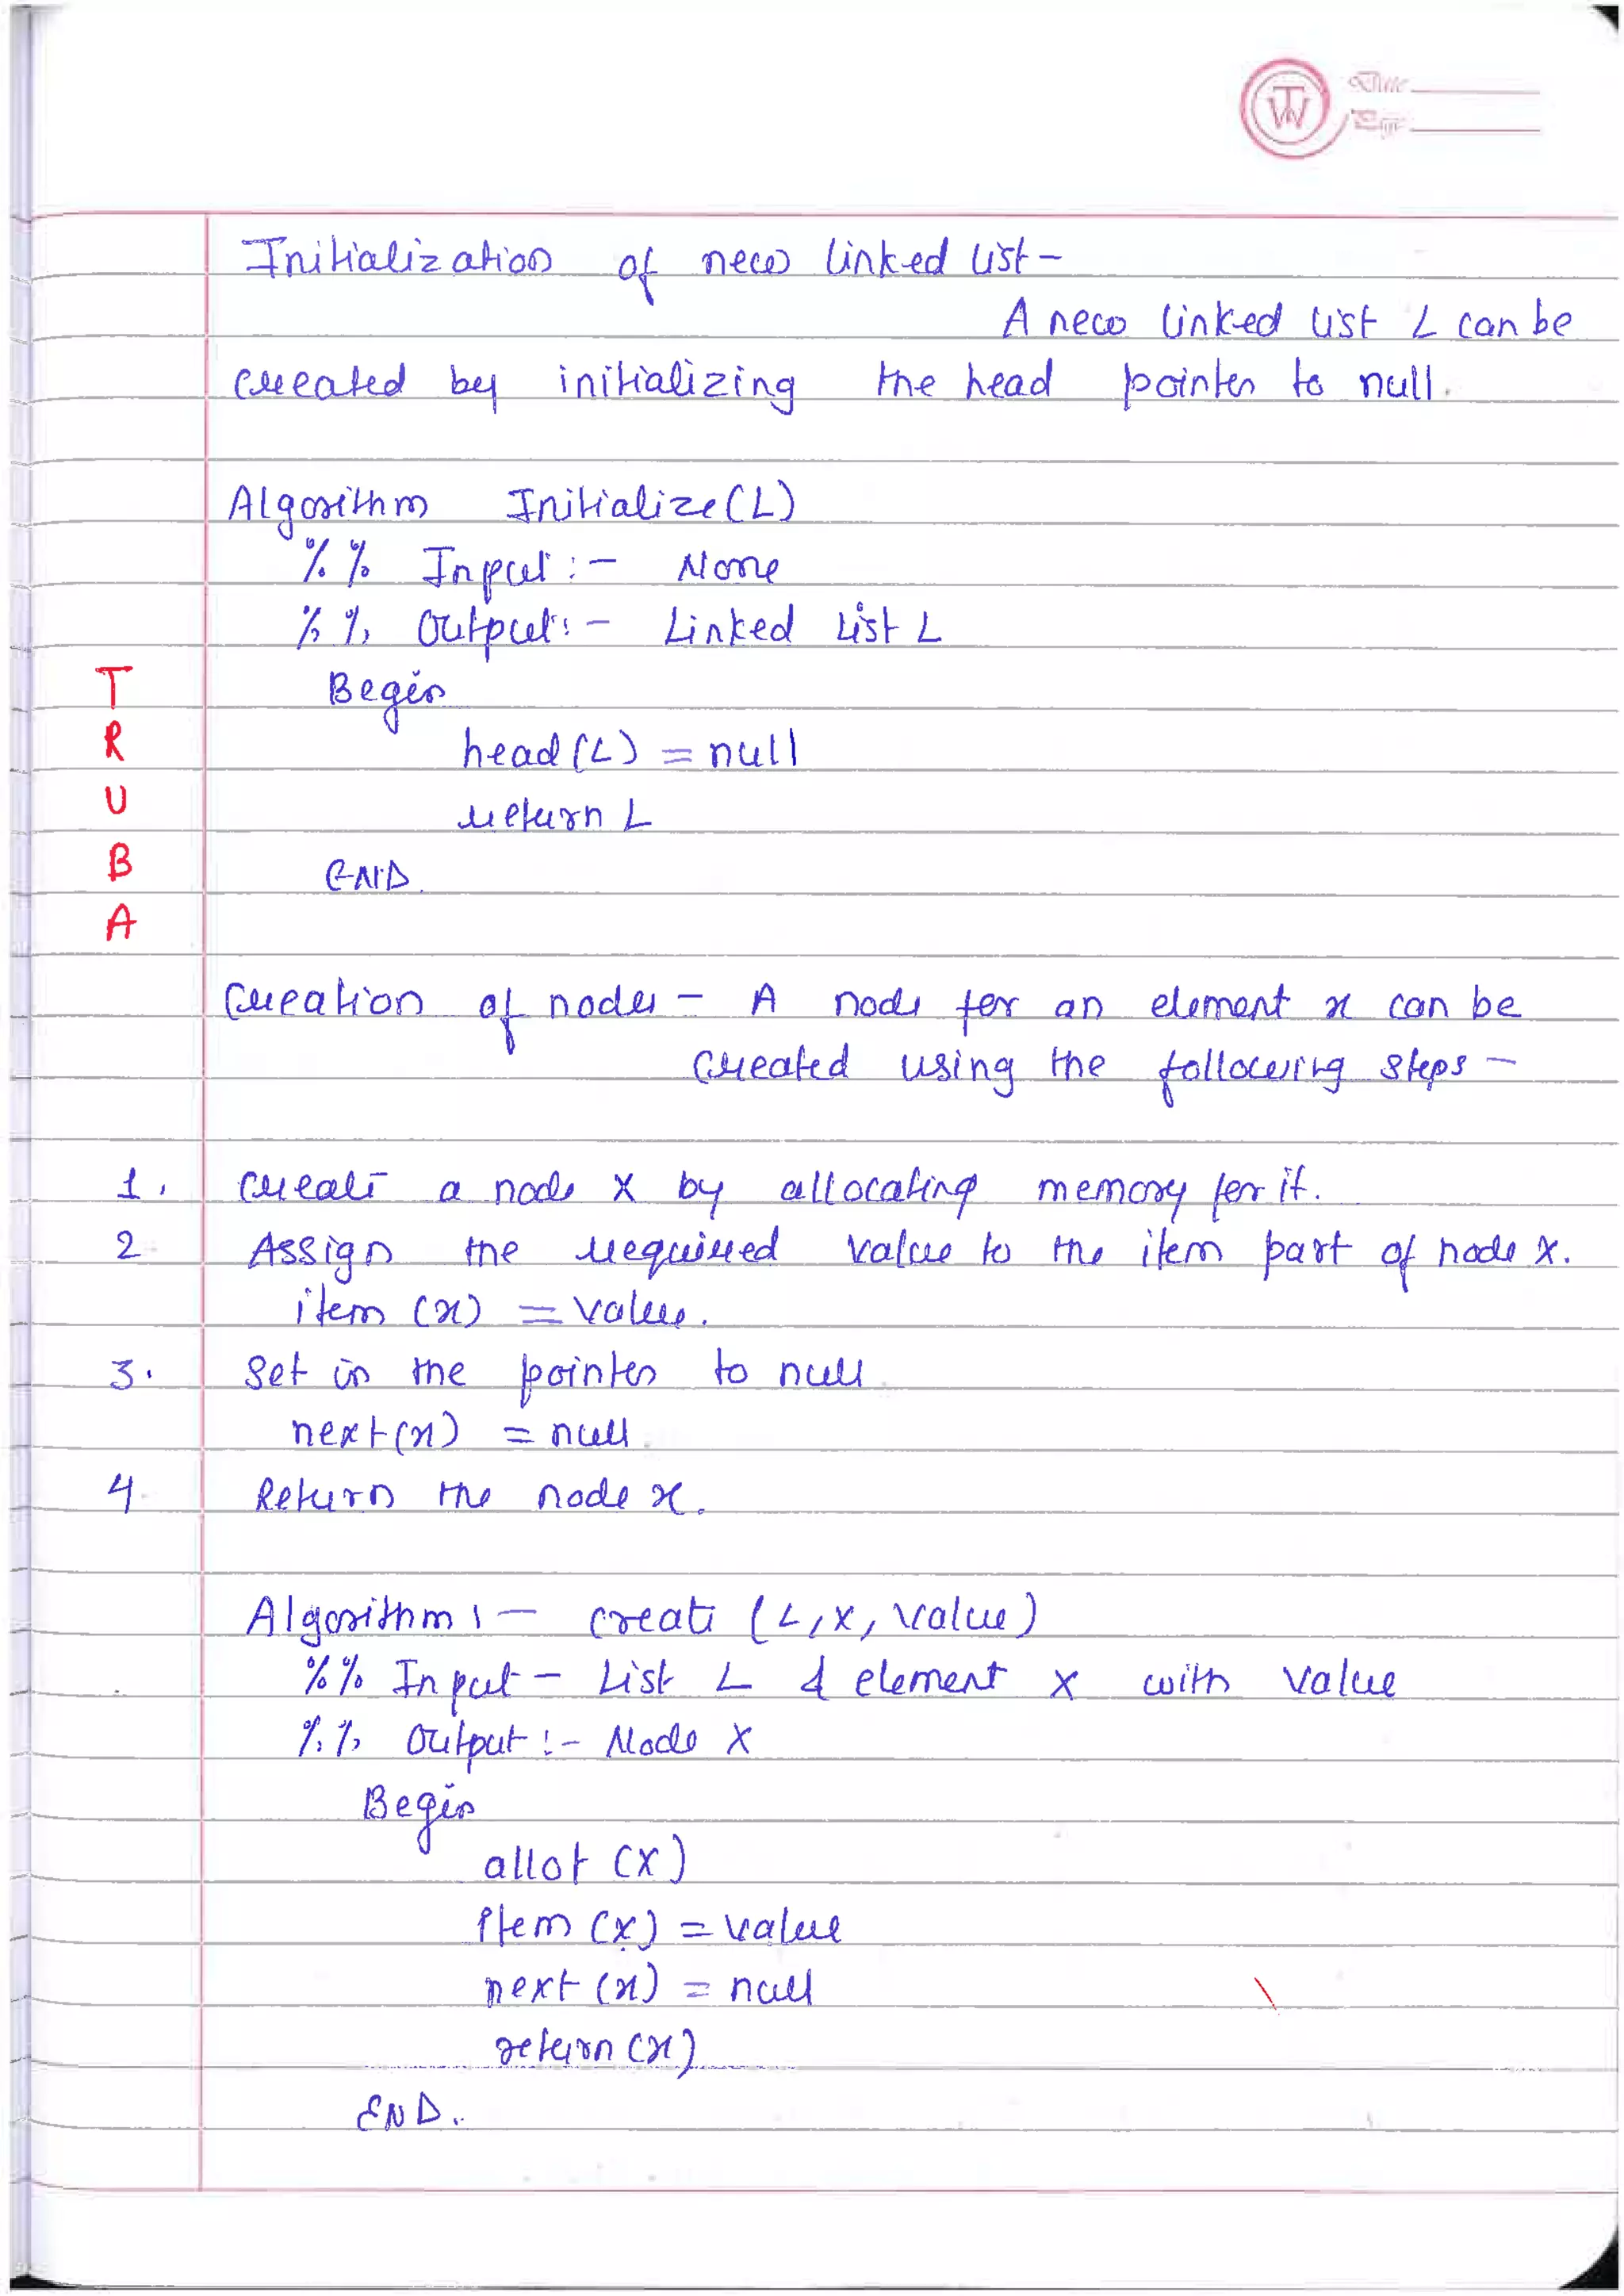 Date
Page
Initialization of new linked list -
A new linked list L can be
created by initializing the head pointer to null.
Algorithm Initialize(L)
%% Input :- None
%% Output :- Linked List L
Begin
head(L) = null
return L
END.
T
R
U
B
A
Creation of nodes - A node for an element x can be
created using the following steps -
1. Create a node X by allocating memory for it.
2. Assign the required value to the item part of node X.
item (x) = value.
3. Set in the pointer to null
next(x) = null.
4. Return the node x.
Algorithm :- create (L, X, value)
%% Input - List L & element X with value
%% Output :- Node X
Begin
allot (X)
item (X) = value
next (x) = null
return (x)
END.